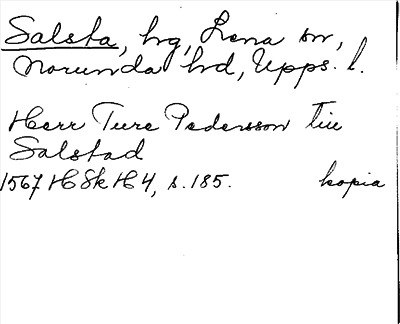 Salsta, hg, Lena sn,
Norunda hd, Upps. l.
Herr Ture Pedersson tiil
Salstad
1567 HSkH 4, s. 185. kopia